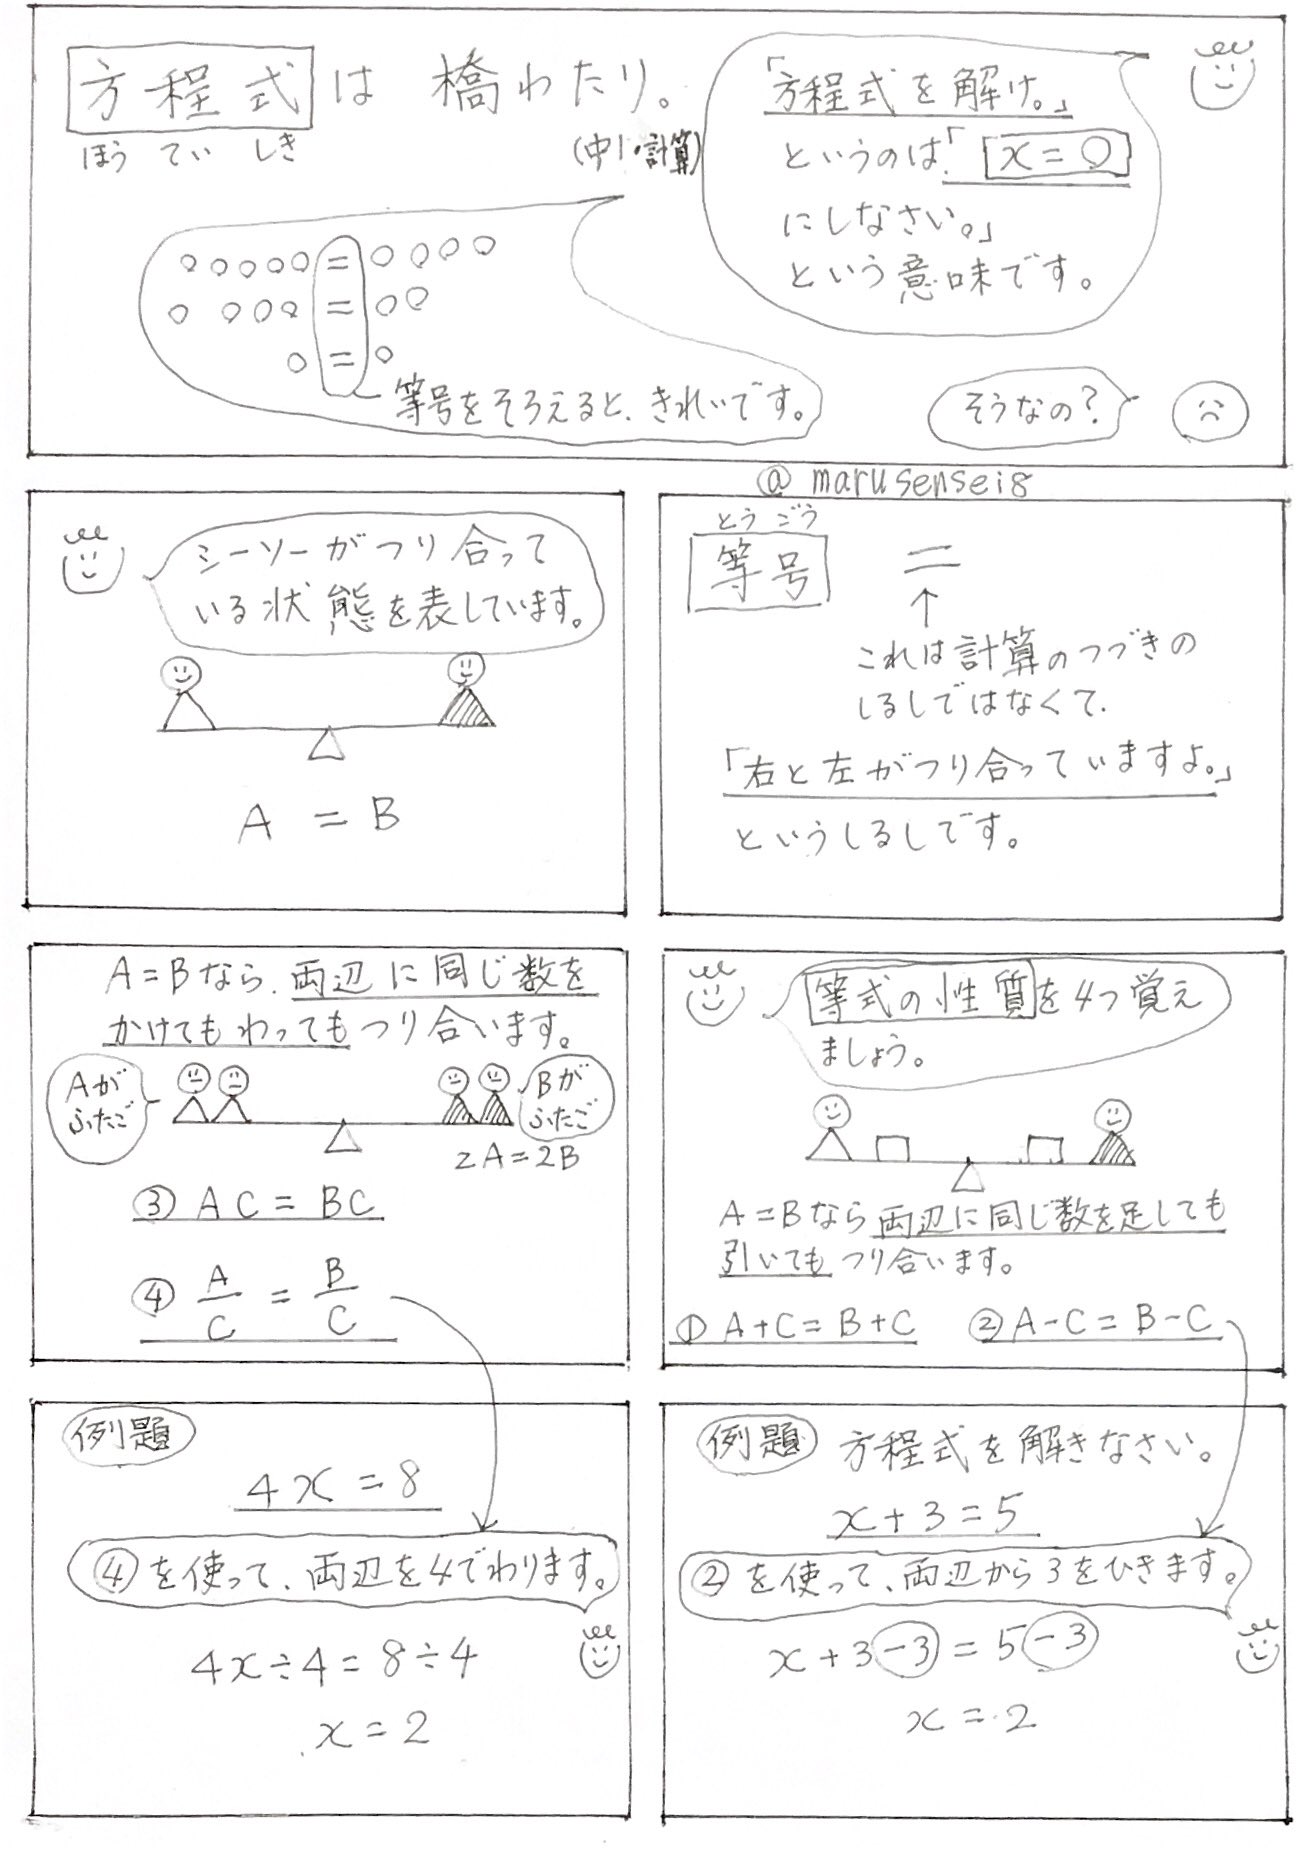 方程式は橋わたり。
ほうていしき
(中1・計算)
「方程式を解け。」
というのは「x=○
にしなさい。」
という意味です。
○○○○○=○○○○
○ ○○○=○○
○=○
等号をそろえると、きれいです。
そうなの?
@marusensei8
とうごう
等号 =
↑
これは計算のつづきの
しるしではなくて、
「右と左がつり合っていますよ。」
というしるしです。
シーソーがつり合って
いる状態を表しています。
A = B
等式の性質を4つ覚え
ましょう。
A=Bなら両辺に同じ数を足しても
引いてもつり合います。
① A+C=B+C ② A-C=B-C
A=Bなら、両辺に同じ数を
かけてもわってもつり合います。
Aが
ふたご
Bが
ふたご
2A=2B
③ AC=BC
④ A/C = B/C
例題 方程式を解きなさい。
x+3=5
②を使って、両辺から3をひきます。
x+3-3=5-3
x=2
例題
4x=8
④を使って、両辺を4でわります。
4x÷4=8÷4
x=2